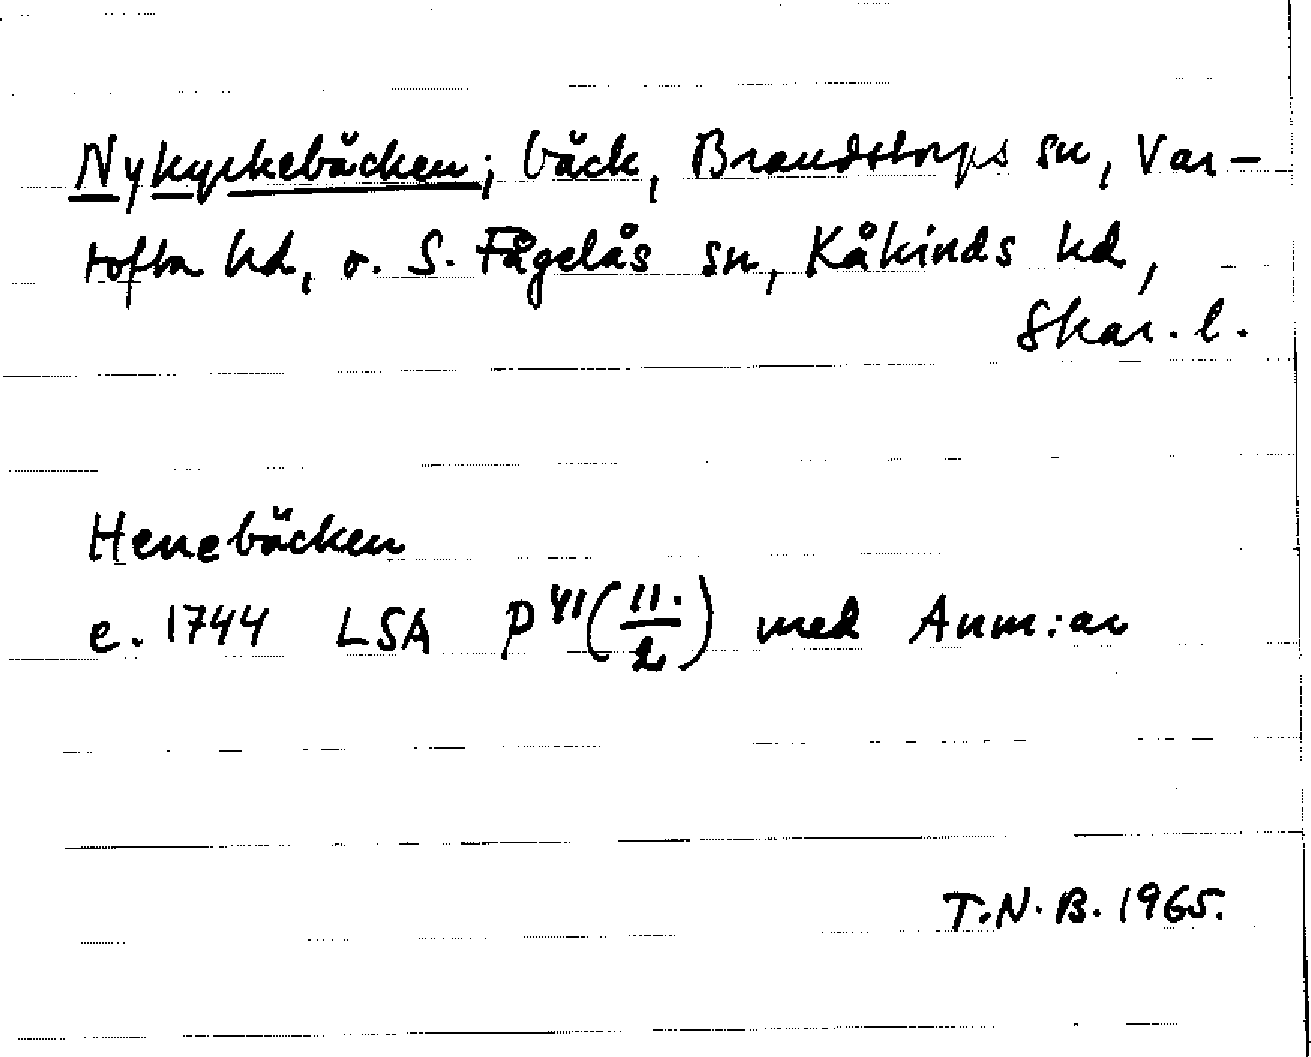 Nykyrkebäcken; bäck, Brandstorps sn, Var-
tofta hd, o. S. Fågelås sn, Kåkinds hd,
Skar. l.
Henebäcken
e. 1744 LSA P 41 (11./2) med Anm:ar
T.N.B. 1965.